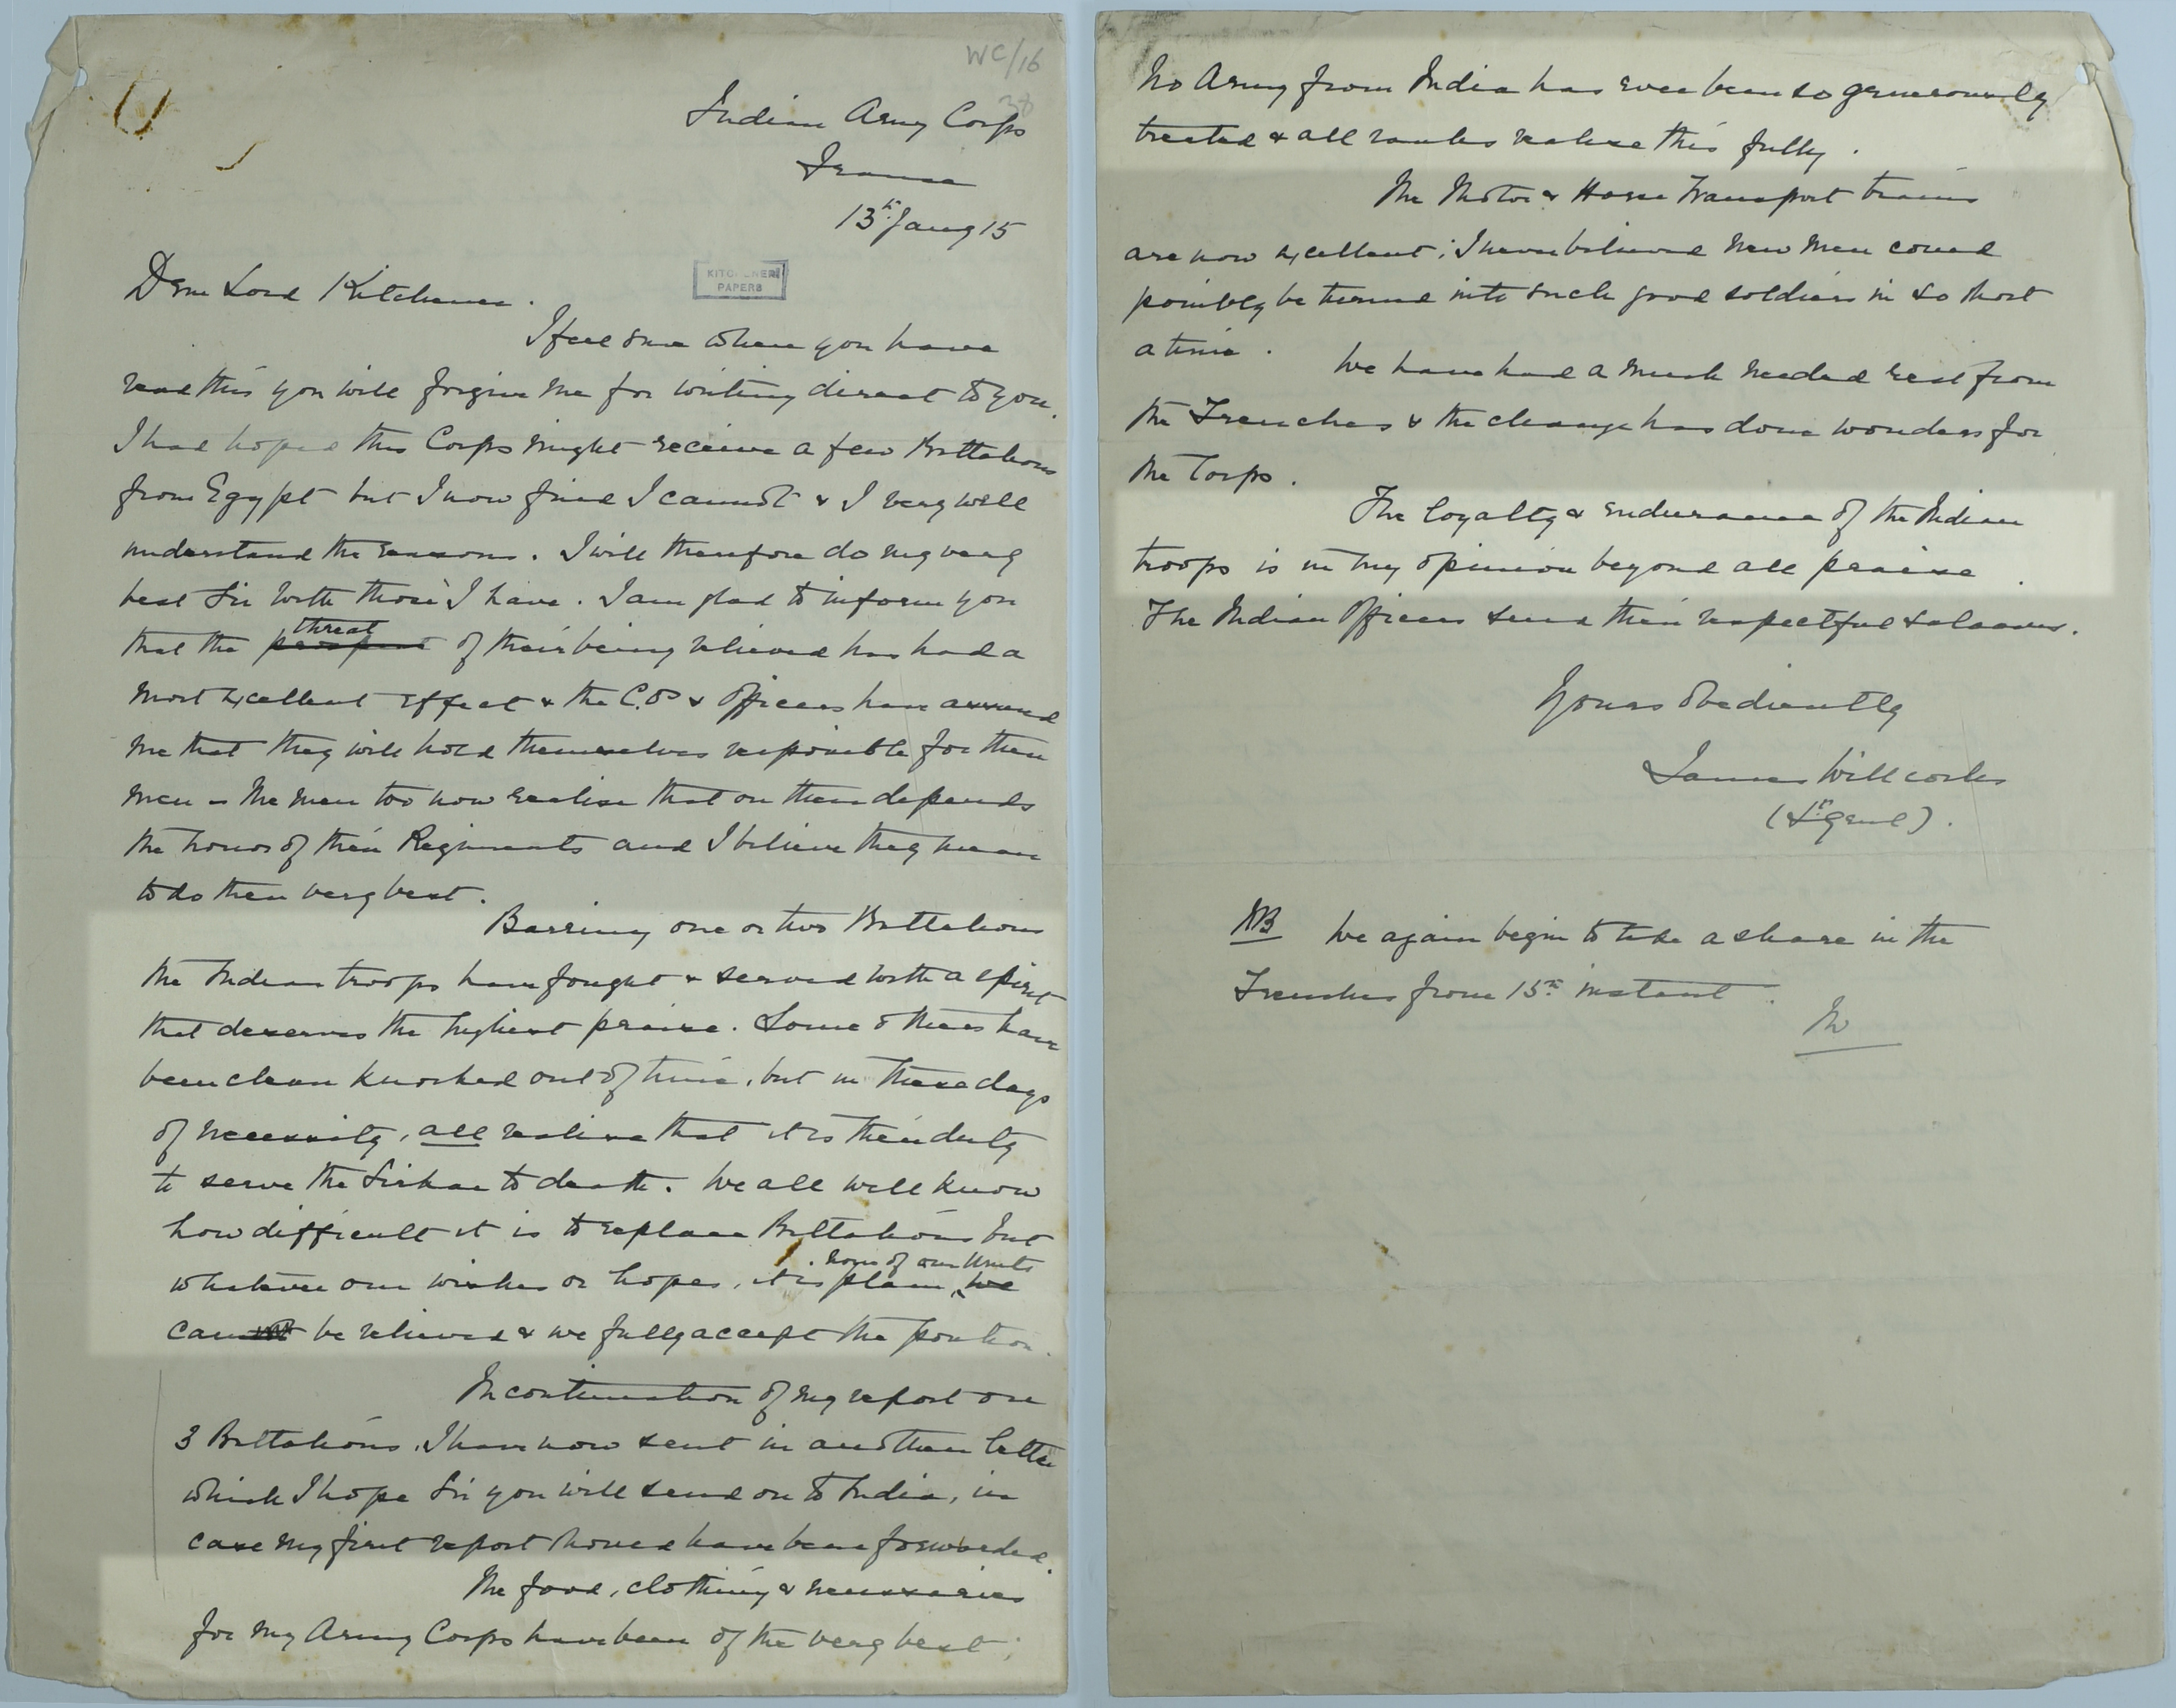 WC/16
38
Indian Army Corps
France
13th Jany 15
KITCHENER
PAPERS
Dear Lord Kitchener.
I feel sure when you have
read this you will forgive me for writing direct to you.
I had hoped this Corps might receive a few Battalions
from Egypt but I now find I cannot & I very well
understand the reasons. I will therefore do my very
best Sir with those I have. I am glad to inform you
threat
that the prospect of their being relieved has had a
most excellent effect & the C.Os & Officers have assured
me that they will hold themselves responsible for their
men – the men too now realise that on them depends
the honor of their Regiments and I believe they mean
to do their very best.
Barring one or two Battalions
the Indian troops have fought & served with a spirit
that deserves the highest praise. Some others have
been clean knocked out of time, but in these days
of necessity, all realise that it is their duty
to serve the Sirkar to death. We all well know
how difficult it is to replace Battalions but
none of our Units
whatever our wishes or hopes, it is plain, we
cannot be relieved & we fully accept the position.
In continuation of my report on
3 Battalions, I have now sent in another letter
which I hope Sir you will send on to India, in
case my first report should have been forwarded.
The food, clothing & necessaries
for my Army Corps have been of the very best;
No Army from India has ever been so generously
treated & all ranks realise this fully.
The Motor & Horse Transport trains
are now excellent; I never believed new men could
possibly be turned into such good soldiers in so short
a time.
We have had a much needed rest from
the Trenches & the change has done wonders for
the Corps.
The loyalty & endurance of the Indian
troops is in my opinion beyond all praise.
The Indian Officers send their respectful salaams.
Yours obediently
James Willcocks
(Lt Genl).
NB We again begin to take a share in the
Trenches from 15th instant.